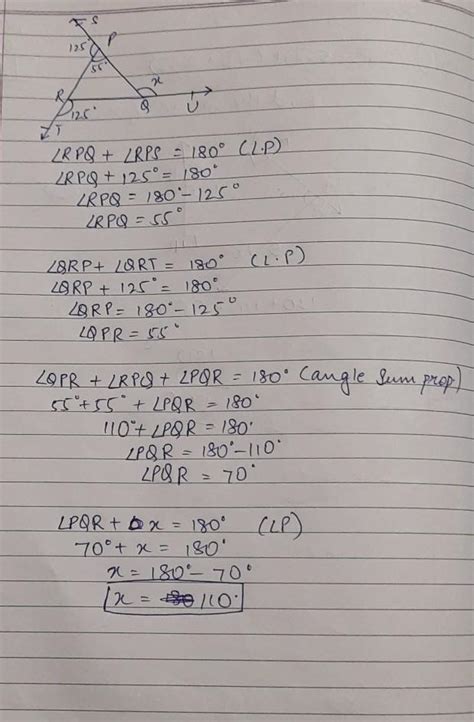 S
125° P
55°
x
R Q U
125°
T
∠RPQ + ∠RPS = 180° (L.P)
∠RPQ + 125° = 180°
∠RPQ = 180° - 125°
∠RPQ = 55°
∠QRP + ∠QRT = 180° (L.P)
∠QRP + 125° = 180°
∠QRP = 180° - 125°
∠QPR = 55°
∠QPR + ∠RPQ + ∠PQR = 180° (angle sum prop)
55° + 55° + ∠PQR = 180°
110° + ∠PQR = 180°
∠PQR = 180° - 110°
∠PQR = 70°
∠PQR + x = 180° (LP)
70° + x = 180°
x = 180° - 70°
x = 110°